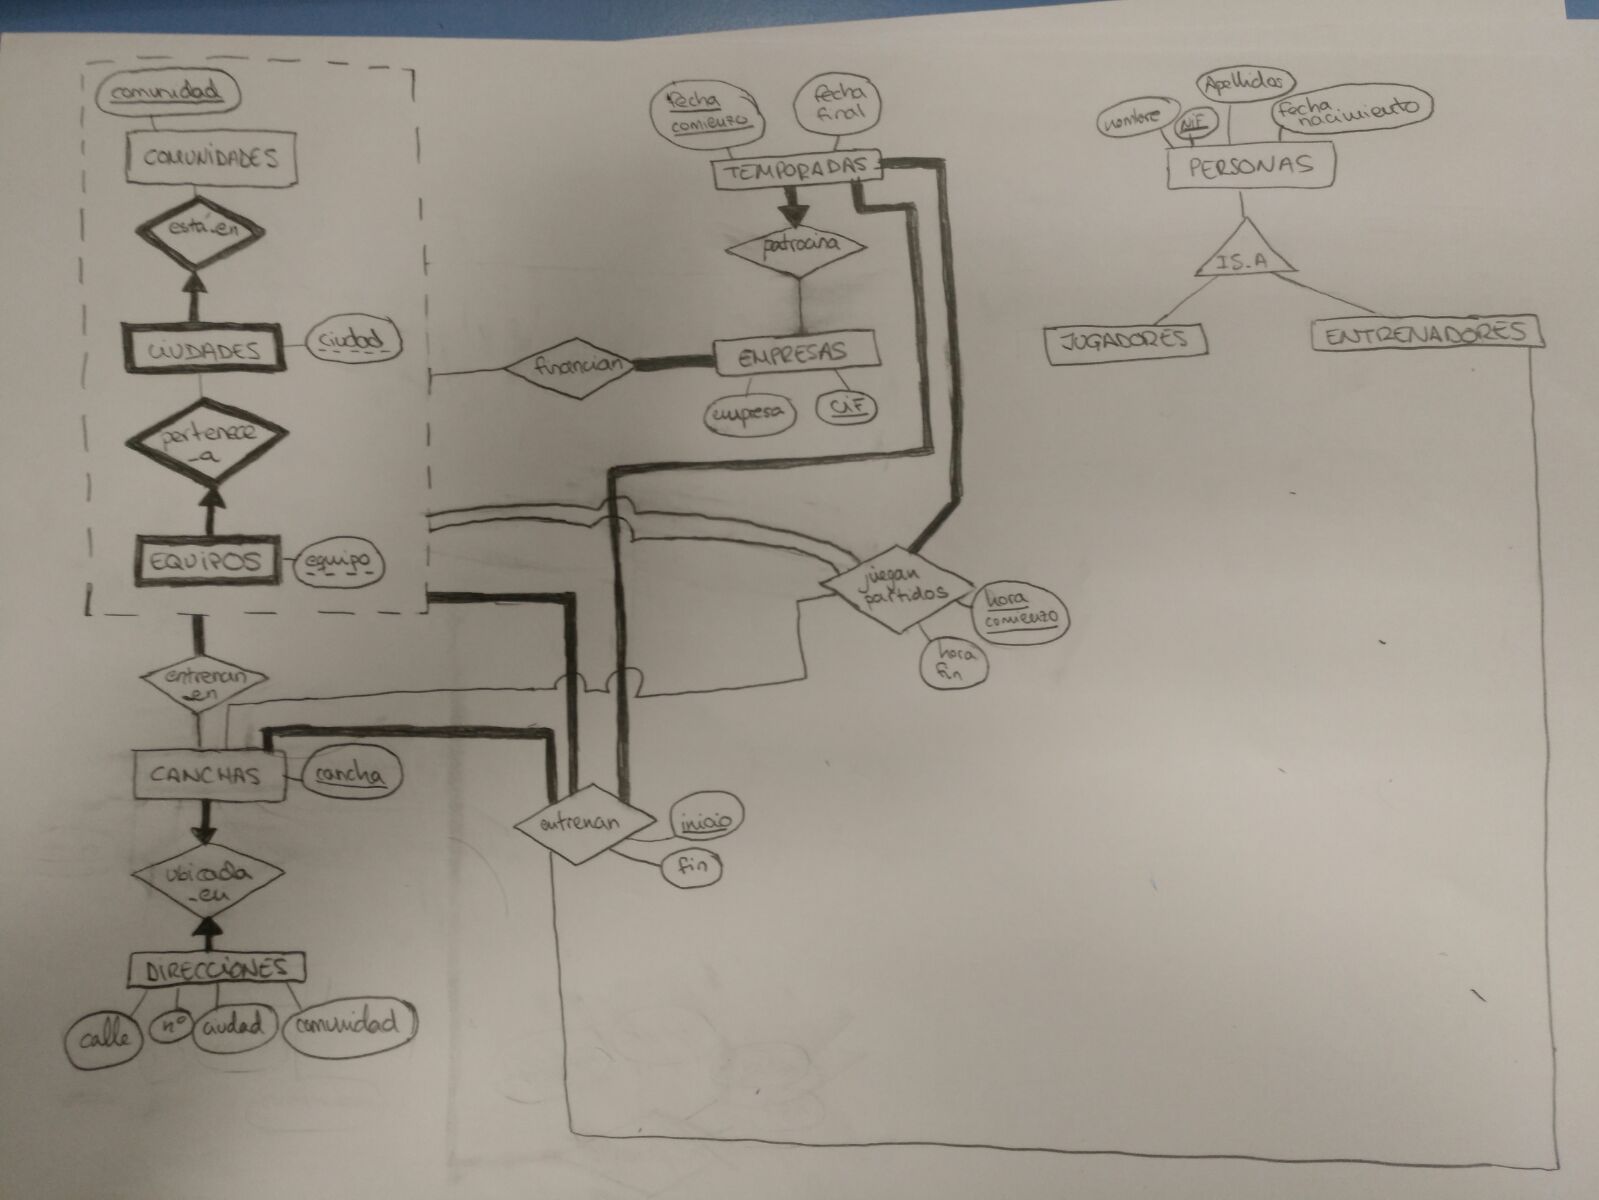 comunidad
COMUNIDADES
está_en
CIUDADES
ciudad
pertenece
_a
EQUIPOS
equipo
entrenan
_en
CANCHAS
cancha
ubicada
_en
DIRECCIONES
calle
nº
ciudad
comunidad
fecha
comienzo
fecha
final
TEMPORADAS
patrocina
financian
EMPRESAS
empresa
CiF
juegan
partidos
hora
comienzo
hora
fin
entrenan
inicio
fin
nombre
NiF
Apellidos
fecha
nacimiento
PERSONAS
IS_A
JUGADORES
ENTRENADORES